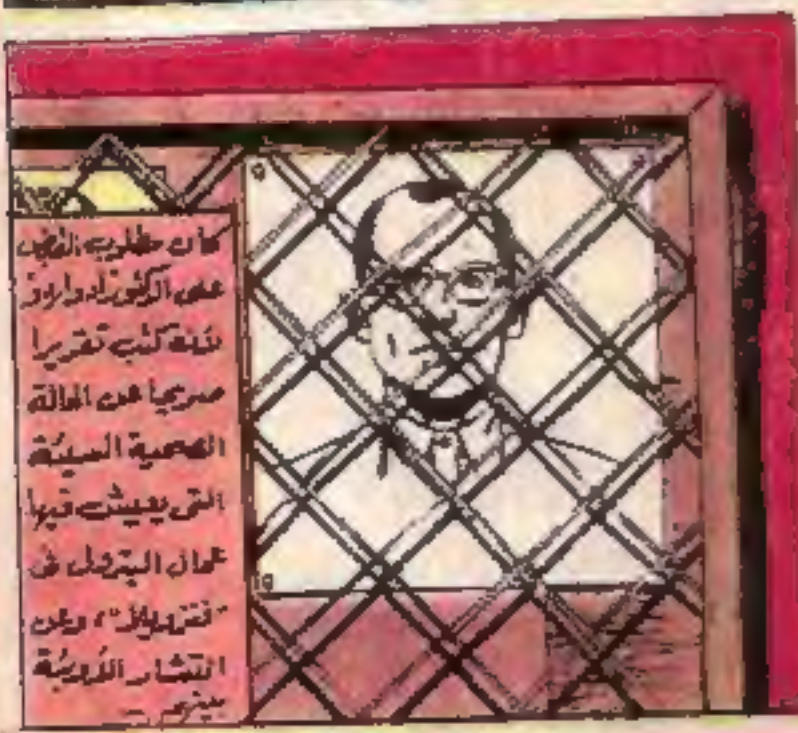 كان مطلوب القبض
على الدكتور ادواردو
لأنه كتب تقريرا
صريحا عن الحالة
الصحية السيئة
التى يعيش فيها
عمال البترول فى
"فنزويلا"، وعن
انتشار الأوبئة
بينهم --